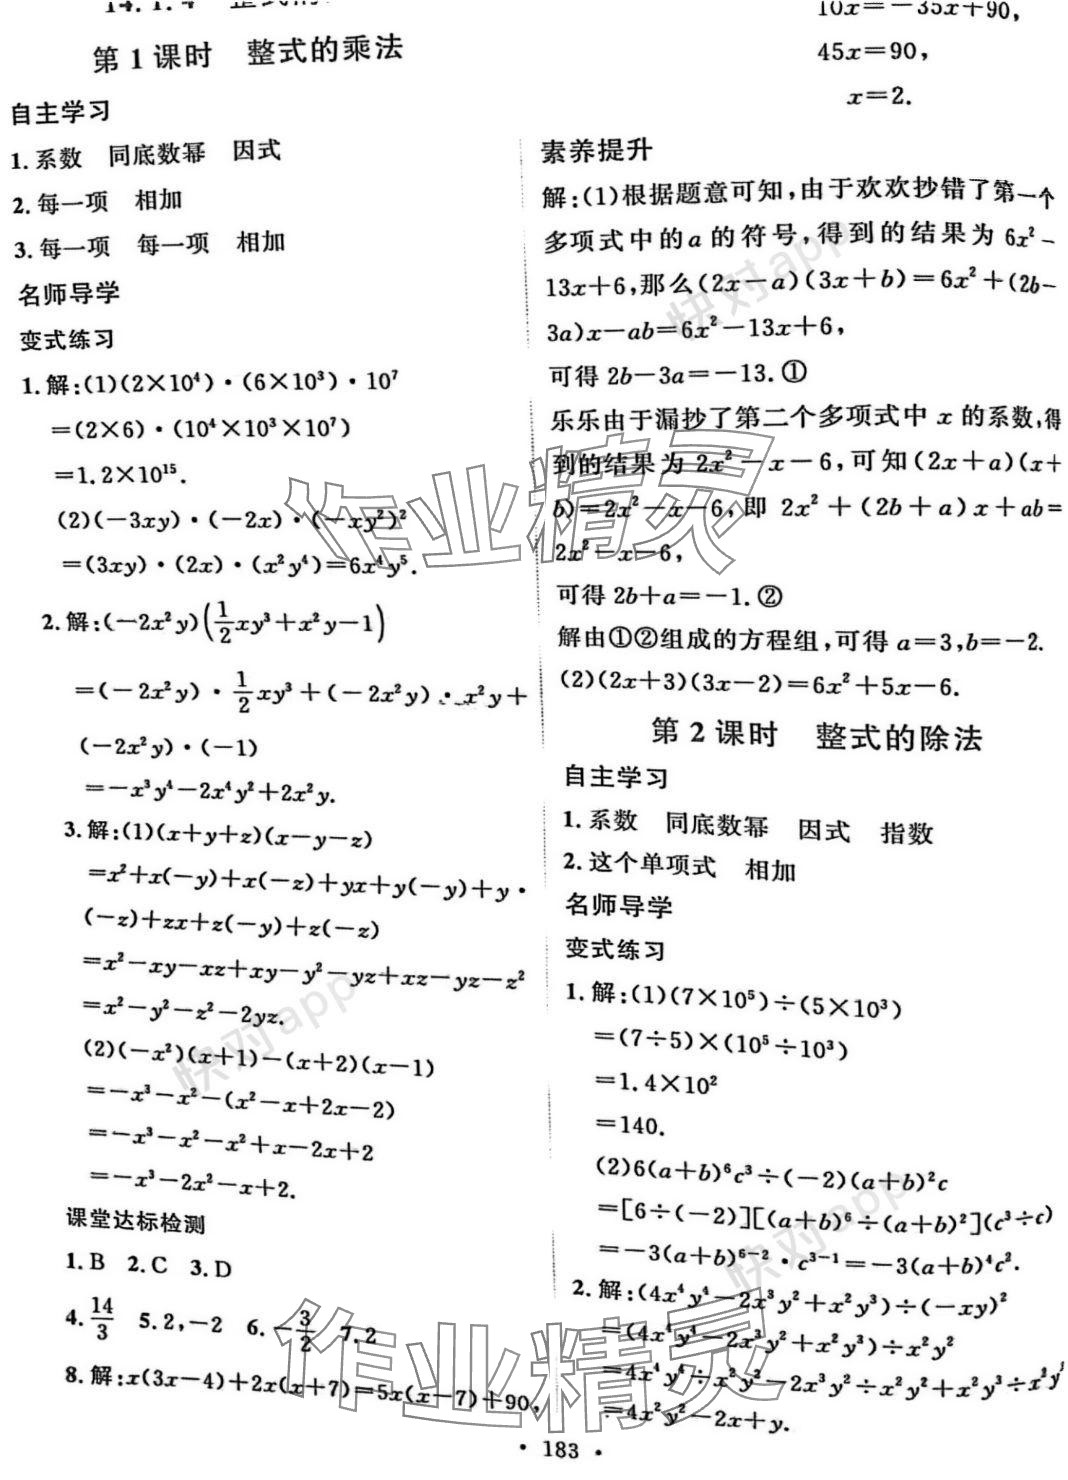 14.1.4
第1课时　整式的乘法
自主学习
1.系数　同底数幂　因式
2.每一项　相加
3.每一项　每一项　相加
名师导学
变式练习
1.解:(1)(2×10⁴)·(6×10³)·10⁷
=(2×6)·(10⁴×10³×10⁷)
=1.2×10¹⁵.
(2)(-3xy)·(-2x)·(-xy²)²
=(3xy)·(2x)·(x²y⁴)=6x⁴y⁵.
2.解:(-2x²y)(1/2xy³+x²y-1)
=(-2x²y)·1/2xy³+(-2x²y)·x²y+
(-2x²y)·(-1)
=-x³y⁴-2x⁴y²+2x²y.
3.解:(1)(x+y+z)(x-y-z)
=x²+x(-y)+x(-z)+yx+y(-y)+y·
(-z)+zx+z(-y)+z(-z)
=x²-xy-xz+xy-y²-yz+xz-yz-z²
=x²-y²-z²-2yz.
(2)(-x²)(x+1)-(x+2)(x-1)
=-x³-x²-(x²-x+2x-2)
=-x³-x²-x²+x-2x+2
=-x³-2x²-x+2.
课堂达标检测
1.B　2.C　3.D
4.14/3　5.2,-2　6.-3/2　7.2
8.解:x(3x-4)+2x(x+7)=5x(x-7)+90,
10x=-35x+90,
45x=90,
x=2.
素养提升
解:(1)根据题意可知,由于欢欢抄错了第一个
多项式中的a的符号,得到的结果为6x²-
13x+6,那么(2x-a)(3x+b)=6x²+(2b-
3a)x-ab=6x²-13x+6,
可得2b-3a=-13.①
乐乐由于漏抄了第二个多项式中x的系数,得
到的结果为2x²-x-6,可知(2x+a)(x+
b)=2x²-x-6,即2x²+(2b+a)x+ab=
2x²-x-6,
可得2b+a=-1.②
解由①②组成的方程组,可得a=3,b=-2.
(2)(2x+3)(3x-2)=6x²+5x-6.
第2课时　整式的除法
自主学习
1.系数　同底数幂　因式　指数
2.这个单项式　相加
名师导学
变式练习
1.解:(1)(7×10⁵)÷(5×10³)
=(7÷5)×(10⁵÷10³)
=1.4×10²
=140.
(2)6(a+b)⁶c³÷(-2)(a+b)²c
=[6÷(-2)][(a+b)⁶÷(a+b)²](c³÷c)
=-3(a+b)⁶⁻²·c³⁻¹=-3(a+b)⁴c².
2.解:(4x⁴y⁴-2x³y²+x²y³)÷(-xy)²
=(4x⁴y⁴-2x³y²+x²y³)÷x²y²
=4x⁴y⁴÷x²y²-2x³y²÷x²y²+x²y³÷x²y²
=4x²y²-2x+y.
·183·
作业精灵
作业精灵
快对app
快对app
快对app